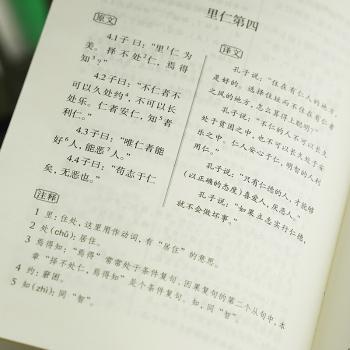 里仁第四
原文
4.1子曰：“里¹仁为
美。择不处²仁，焉得
知³？”
4.2子曰：“不仁者不
可以久处约⁴，不可以长
处乐。仁者安仁，知⁵者
利仁。”
4.3子曰：“唯仁者能
好⁶人，能恶⁷人。”
4.4子曰：“苟志于仁
矣，无恶也。”
译文
孔子说：“住在有仁人的地方
是好的。选择住址而不住在有仁者
之风的地方，怎么算得上聪明？”
孔子说：“不仁的人不可以长久
处于贫困之中，也不可以长久处于安
乐之中。仁人安心于仁，明智的人利
用仁。”
孔子说：“只有仁德的人，才能够
（以正确的态度）喜爱人，厌恶人。”
孔子说：“如果立志实行仁德，
就不会做坏事。”
注释
1 里：住处，这里用作动词，有“居住”的意思。
2 处（chǔ）：居住。
3 焉得知：“焉得”常常处于条件复句、因果复句的第二个从句中，本
章“择不处仁，焉得知”是个条件复句。知，同“智”。
4 约：窘困。
5 知（zhì）：同“智”。